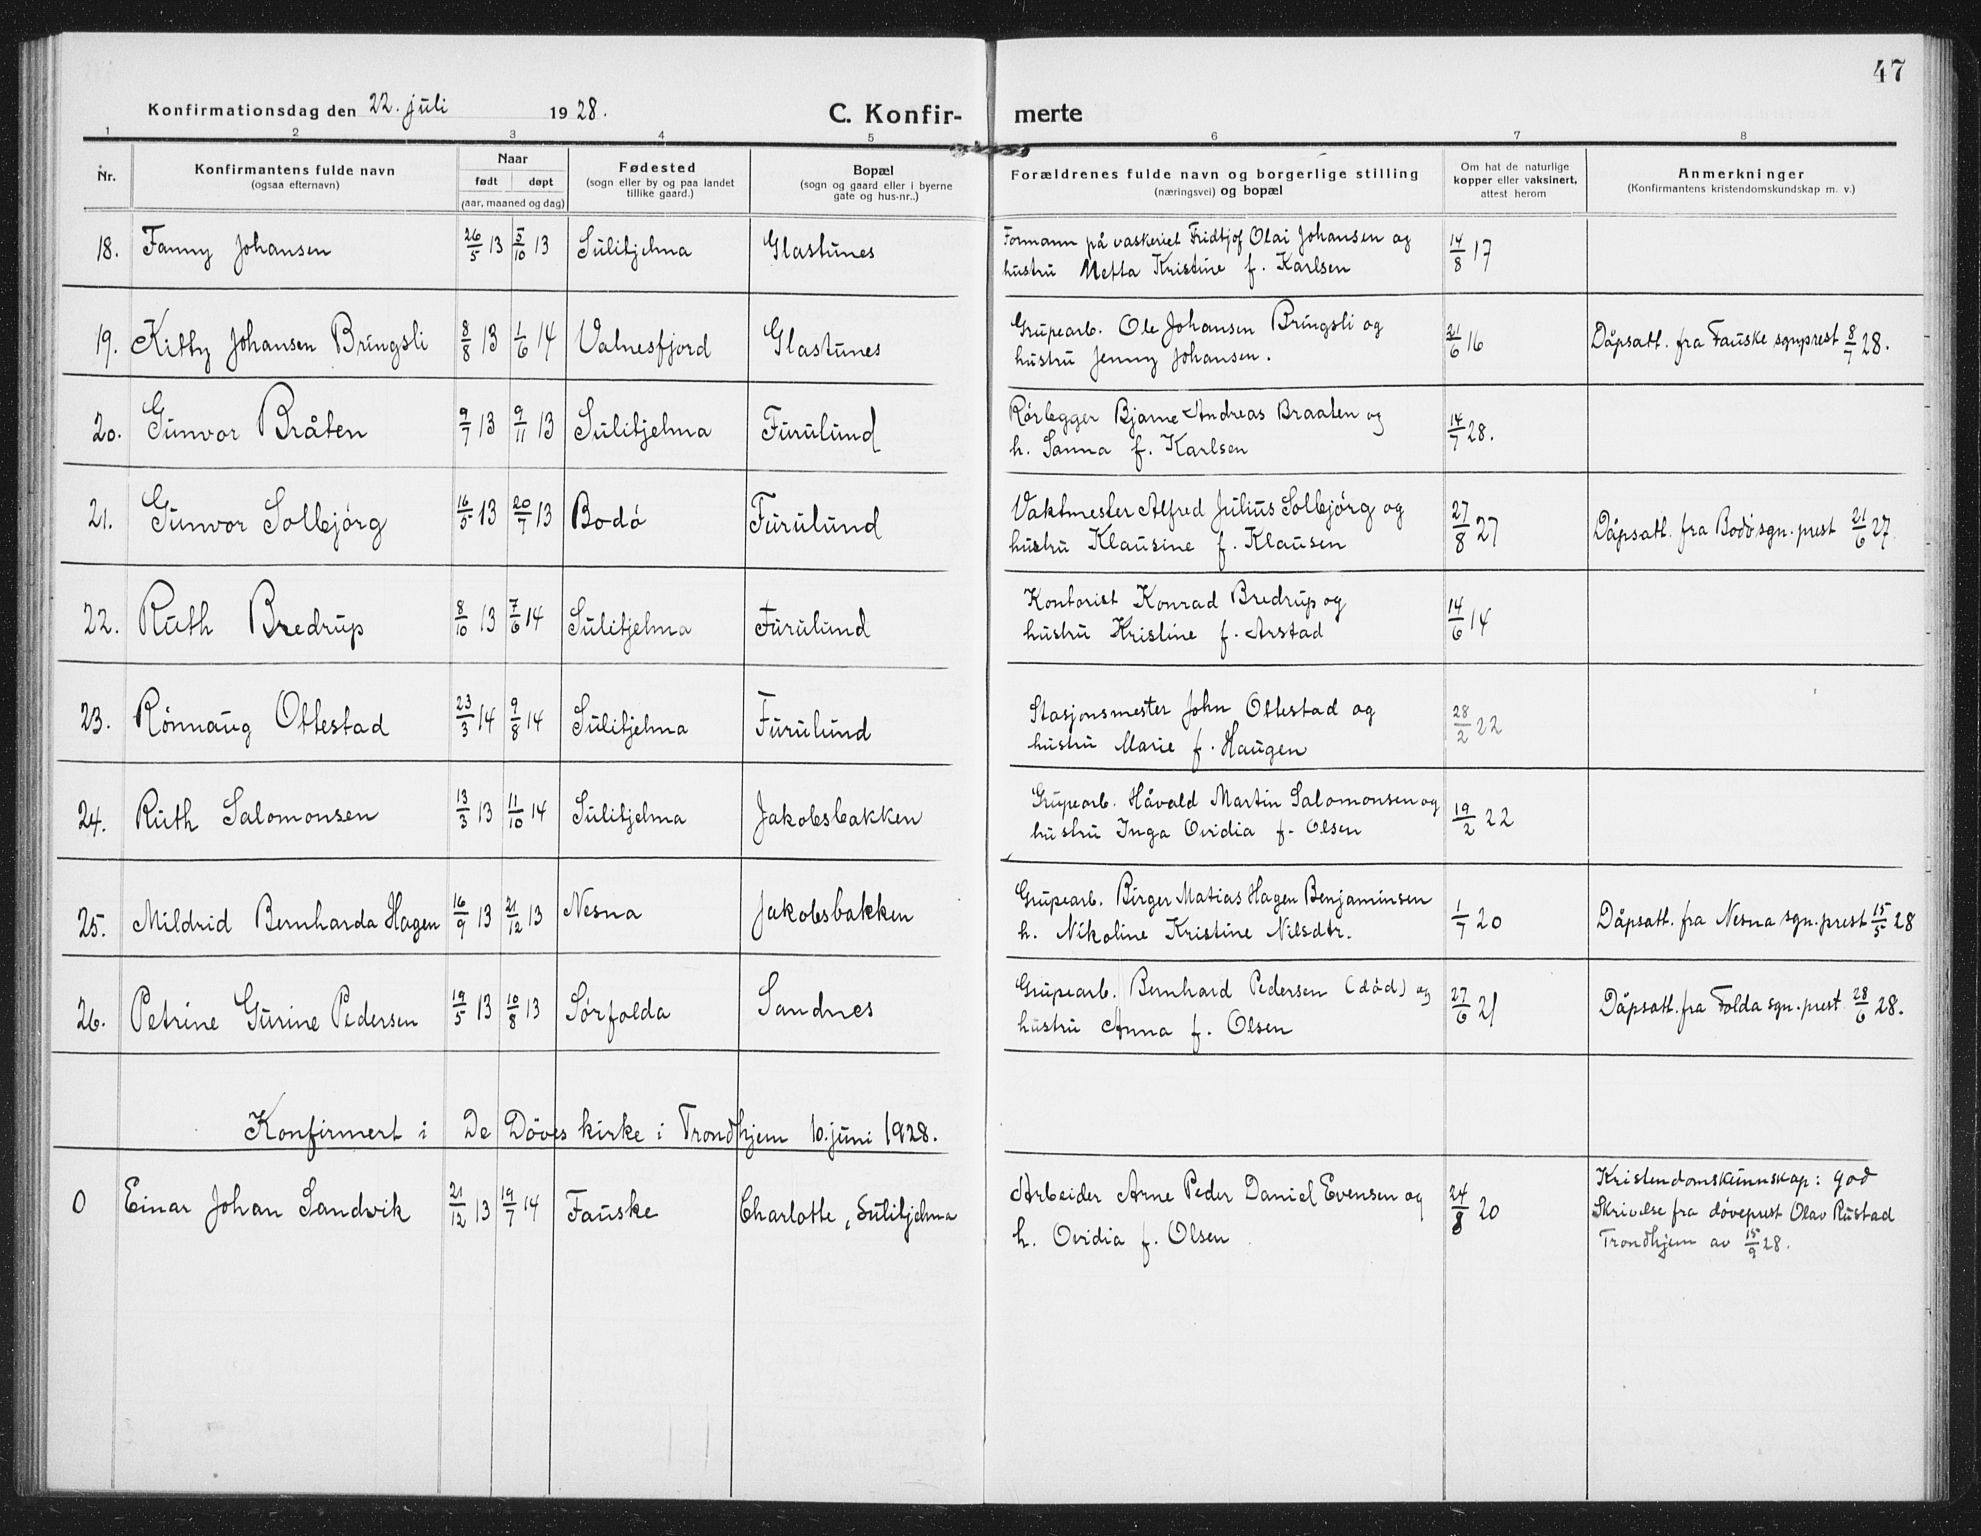 47
Konfirmationsdag den 22. juli 1928. C. Konfir- merte
1 2 3 4 5 6 7 8
Nr.
Konfirmantens fulde navn
(ogsaa efternavn)
Naar
født døpt
(aar, maaned og dag)
Fødested
(sogn eller by og paa landet
tillike gaard.)
Bopæl
(sogn og gaard eller i byerne
gate og hus-nr..)
Forældrenes fulde navn og borgerlige stilling
(næringsvei) og bopæl
Om hat de naturlige
kopper eller vaksinert,
attest herom
Anmerkninger
(Konfirmantens kristendomskundskap m. v.)
18. Fanny Johansen 26/5 13 5/10 13 Sulitjelma Glastunes
Formann på vaskeriet Fridtjof Olai Johansen og
hustru Metta Kristine f. Karlsen
14/8 17
19. Kitty Johansen Bringsli 8/8 13 1/6 14 Valnesfjord Glastunes
Grupearb. Ole Johansen Bringsli og
hustru Jenny Johansen.
21/6 16
Dåpsatt. fra Fauske sgnprest 8/7 28.
20. Gunvor Bråten 9/7 13 9/11 13 Sulitjelma Furulund
Rørlegger Bjarne Andreas Braaten og
h. Sanna f. Karlsen
14/7 28.
21. Gunvor Solbjørg 16/5 13 20/7 13 Bodó Furulund
Vaktmester Alfred Julius Solbjórg og
hustru Klausine f. Klausen
27/8 27
Dåpsatt. fra Bodó sgn. prest 21/6 27.
22. Ruth Bredrup 8/10 13 7/6 14 Sulitjelma Furulund
Kontorist Konrad Bredrup og
hustru Kristine f. Arstad
14/6 14
23. Rónnaug Ottestad 23/3 14 9/8 14 Sulitjelma Furulund
Stasjonsmester John Ottestad og
hustru Marie f. Haugen
28/2 22
24. Ruth Salomonsen 13/3 13 11/10 14 Sulitjelma Jakobsbakken
Grupearb. Håvald Martin Salomonsen og
hustru Inga Ovidia f. Olsen
19/2 22
25. Mildrid Bernharda Hagen 16/9 13 21/12 13 Nesna Jakobsbakken
Grupearb. Birger Matias Hagen Benjaminsen
h. Nikoline Kristine Nilsdtr.
1/7 20
Dåpsatt. fra Nesna sgn. prest 15/5 28
26. Petrine Gurine Pedersen 19/5 13 10/8 13 Sørfolda Sandnes
Grupearb. Bernhard Pedersen (død) og
hustru Anna f. Olsen
27/6 21
Dåpsatt. fra Folda sgn. prest 28/6 28.
Konfirmert i De Døves kirke i Trondhjem 10. juni 1928.
0 Einar Johan Sandvik 21/12 13 19/7 14 Fauske Charlotte, Sulitjelma
Arbeider Arne Peder Daniel Evensen og
h. Ovidia f. Olsen
24/8 20
Kristendomskunnskap: god
Skrivelse fra døveprest Olav Rustad
Trondhjem av 15/9 28.